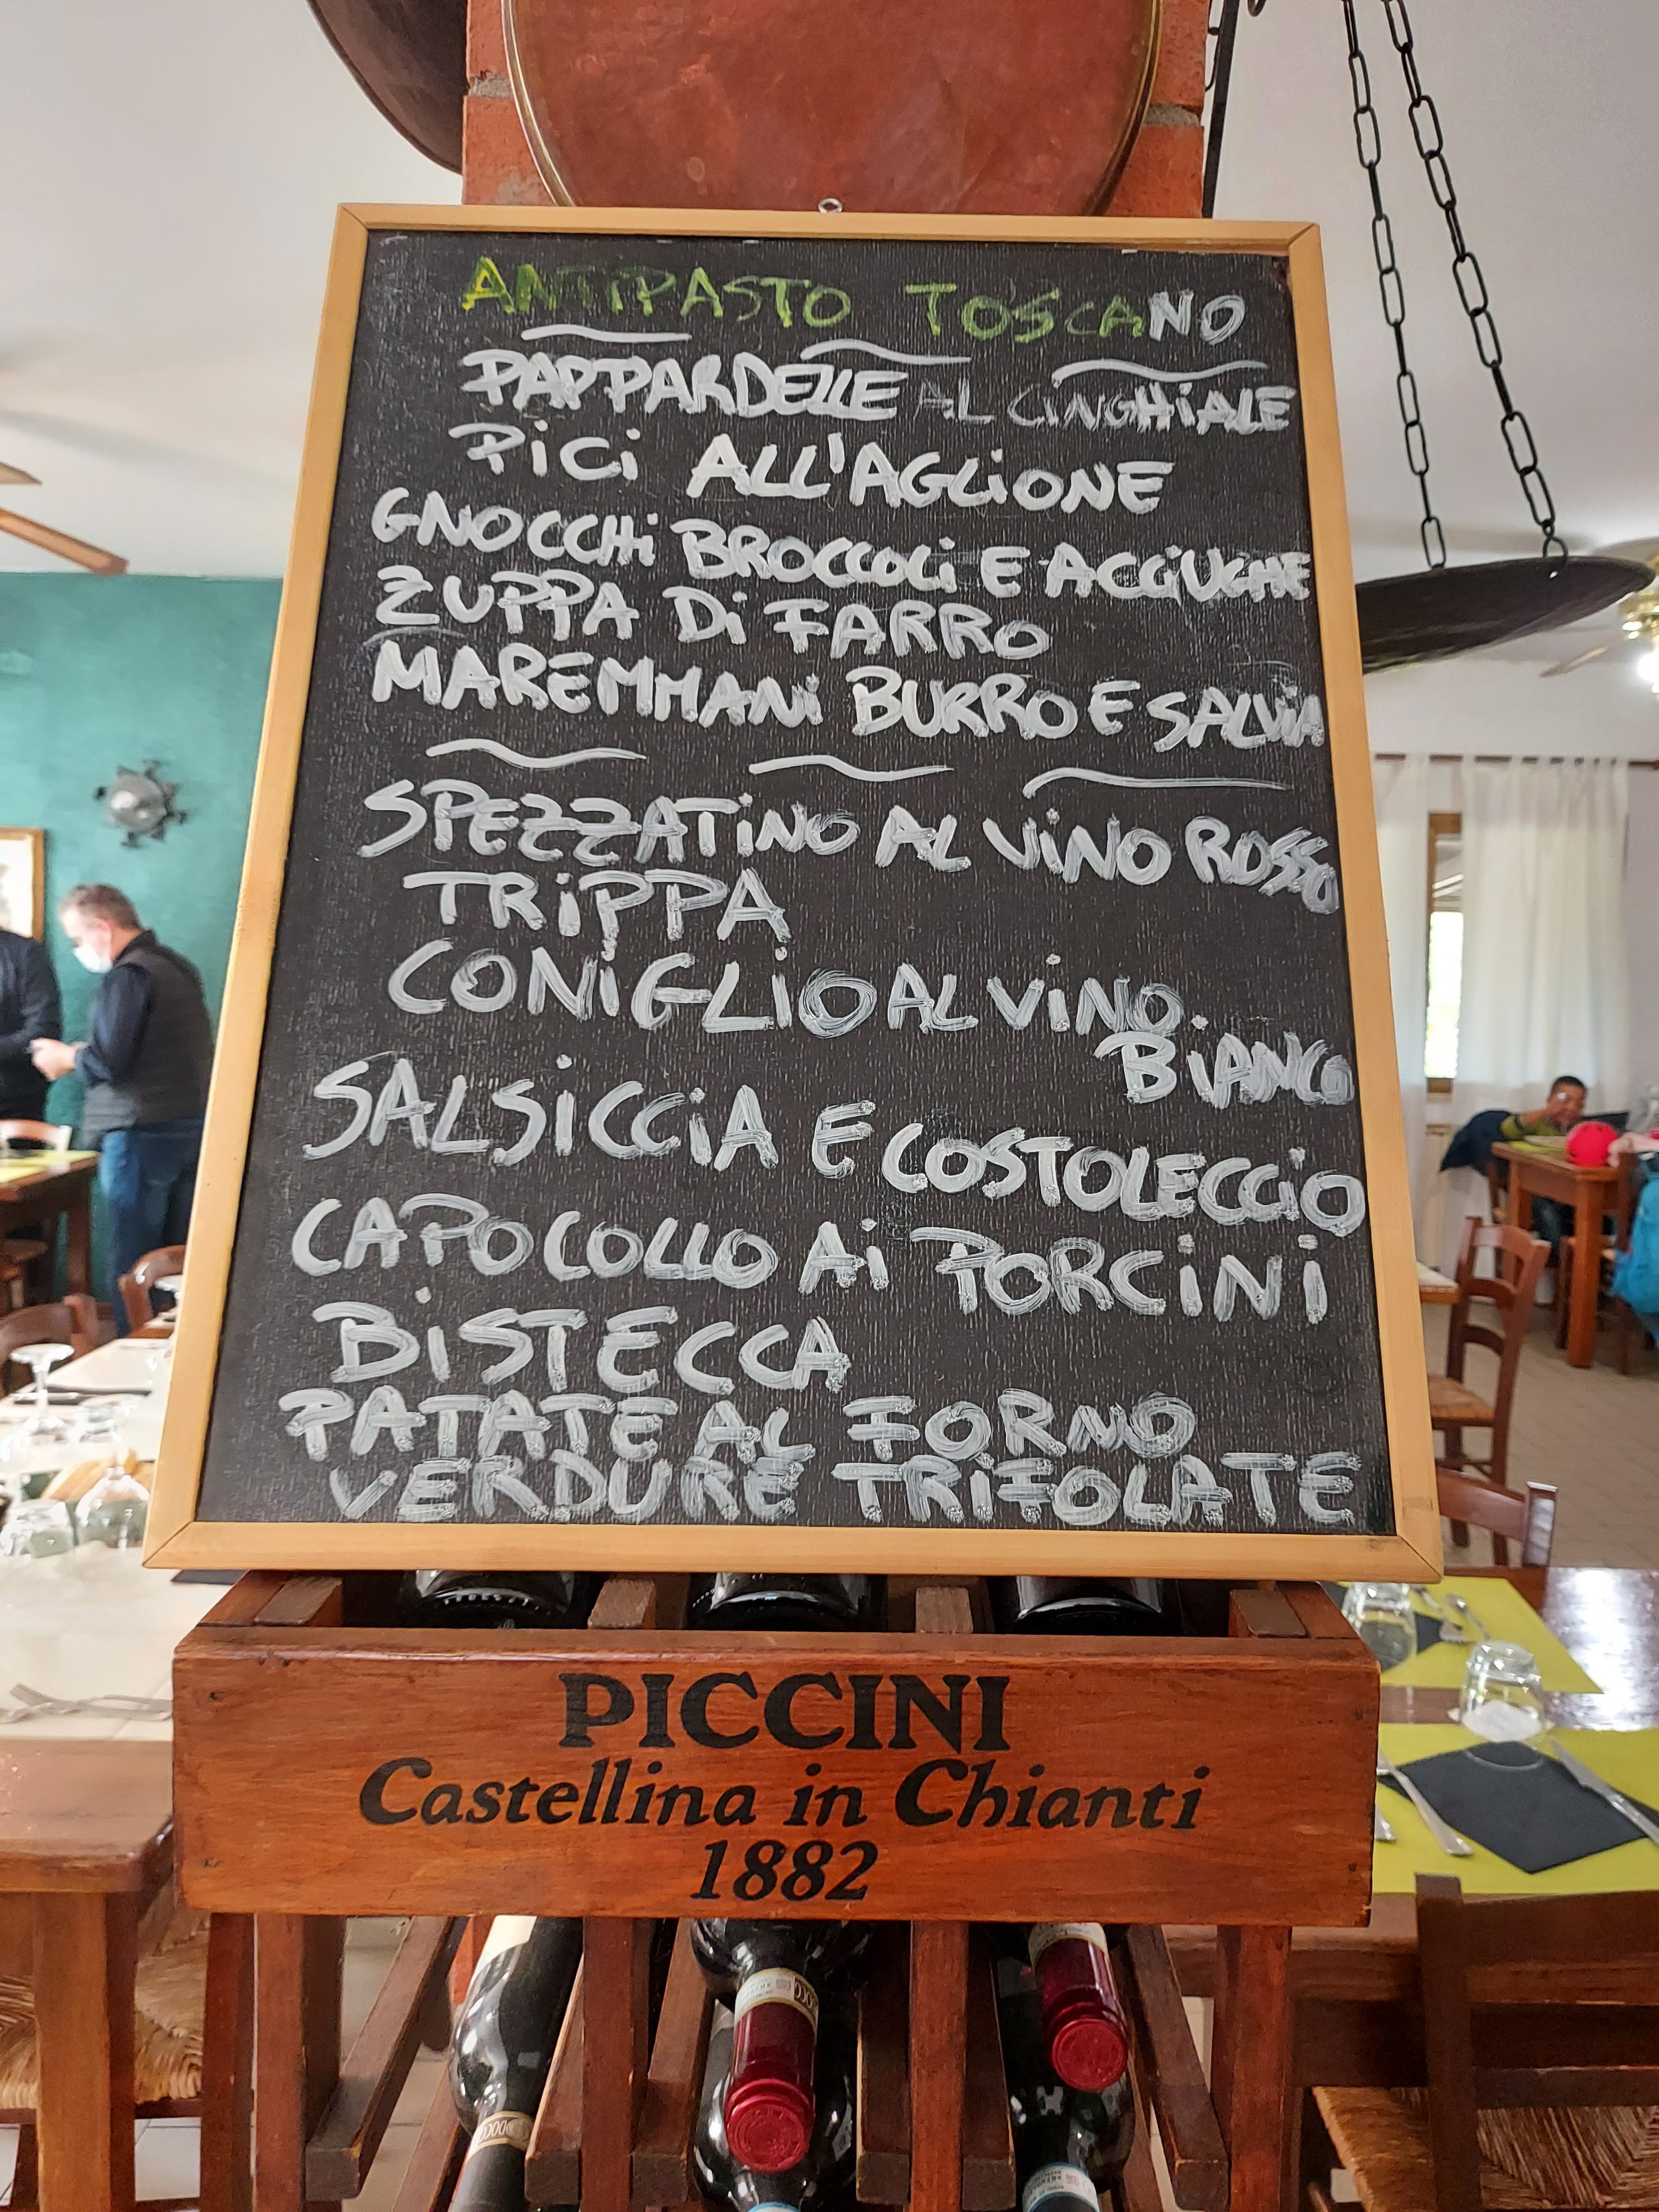 ANTIPASTO TOSCANO
PAPPARDELLE AL CINGHIALE
PiCi ALL'AGLiONE
GNOCCHi BROCCOLi E ACCiUGHE
ZUPPA Di FARRO
MAREMMANi BURRO E SALViA
SPEZZATiNO AL ViNO ROSSO
TRiPPA
CONiGLiO AL ViNO.
BiANCO
SALSiCCiA E COSTOLECCiO
CAPOCOLLO Ai PORCiNi
BiSTECCA
PATATE AL FORNO
VERDURE TRiFOLATE
PICCINI
Castellina in Chianti
1882